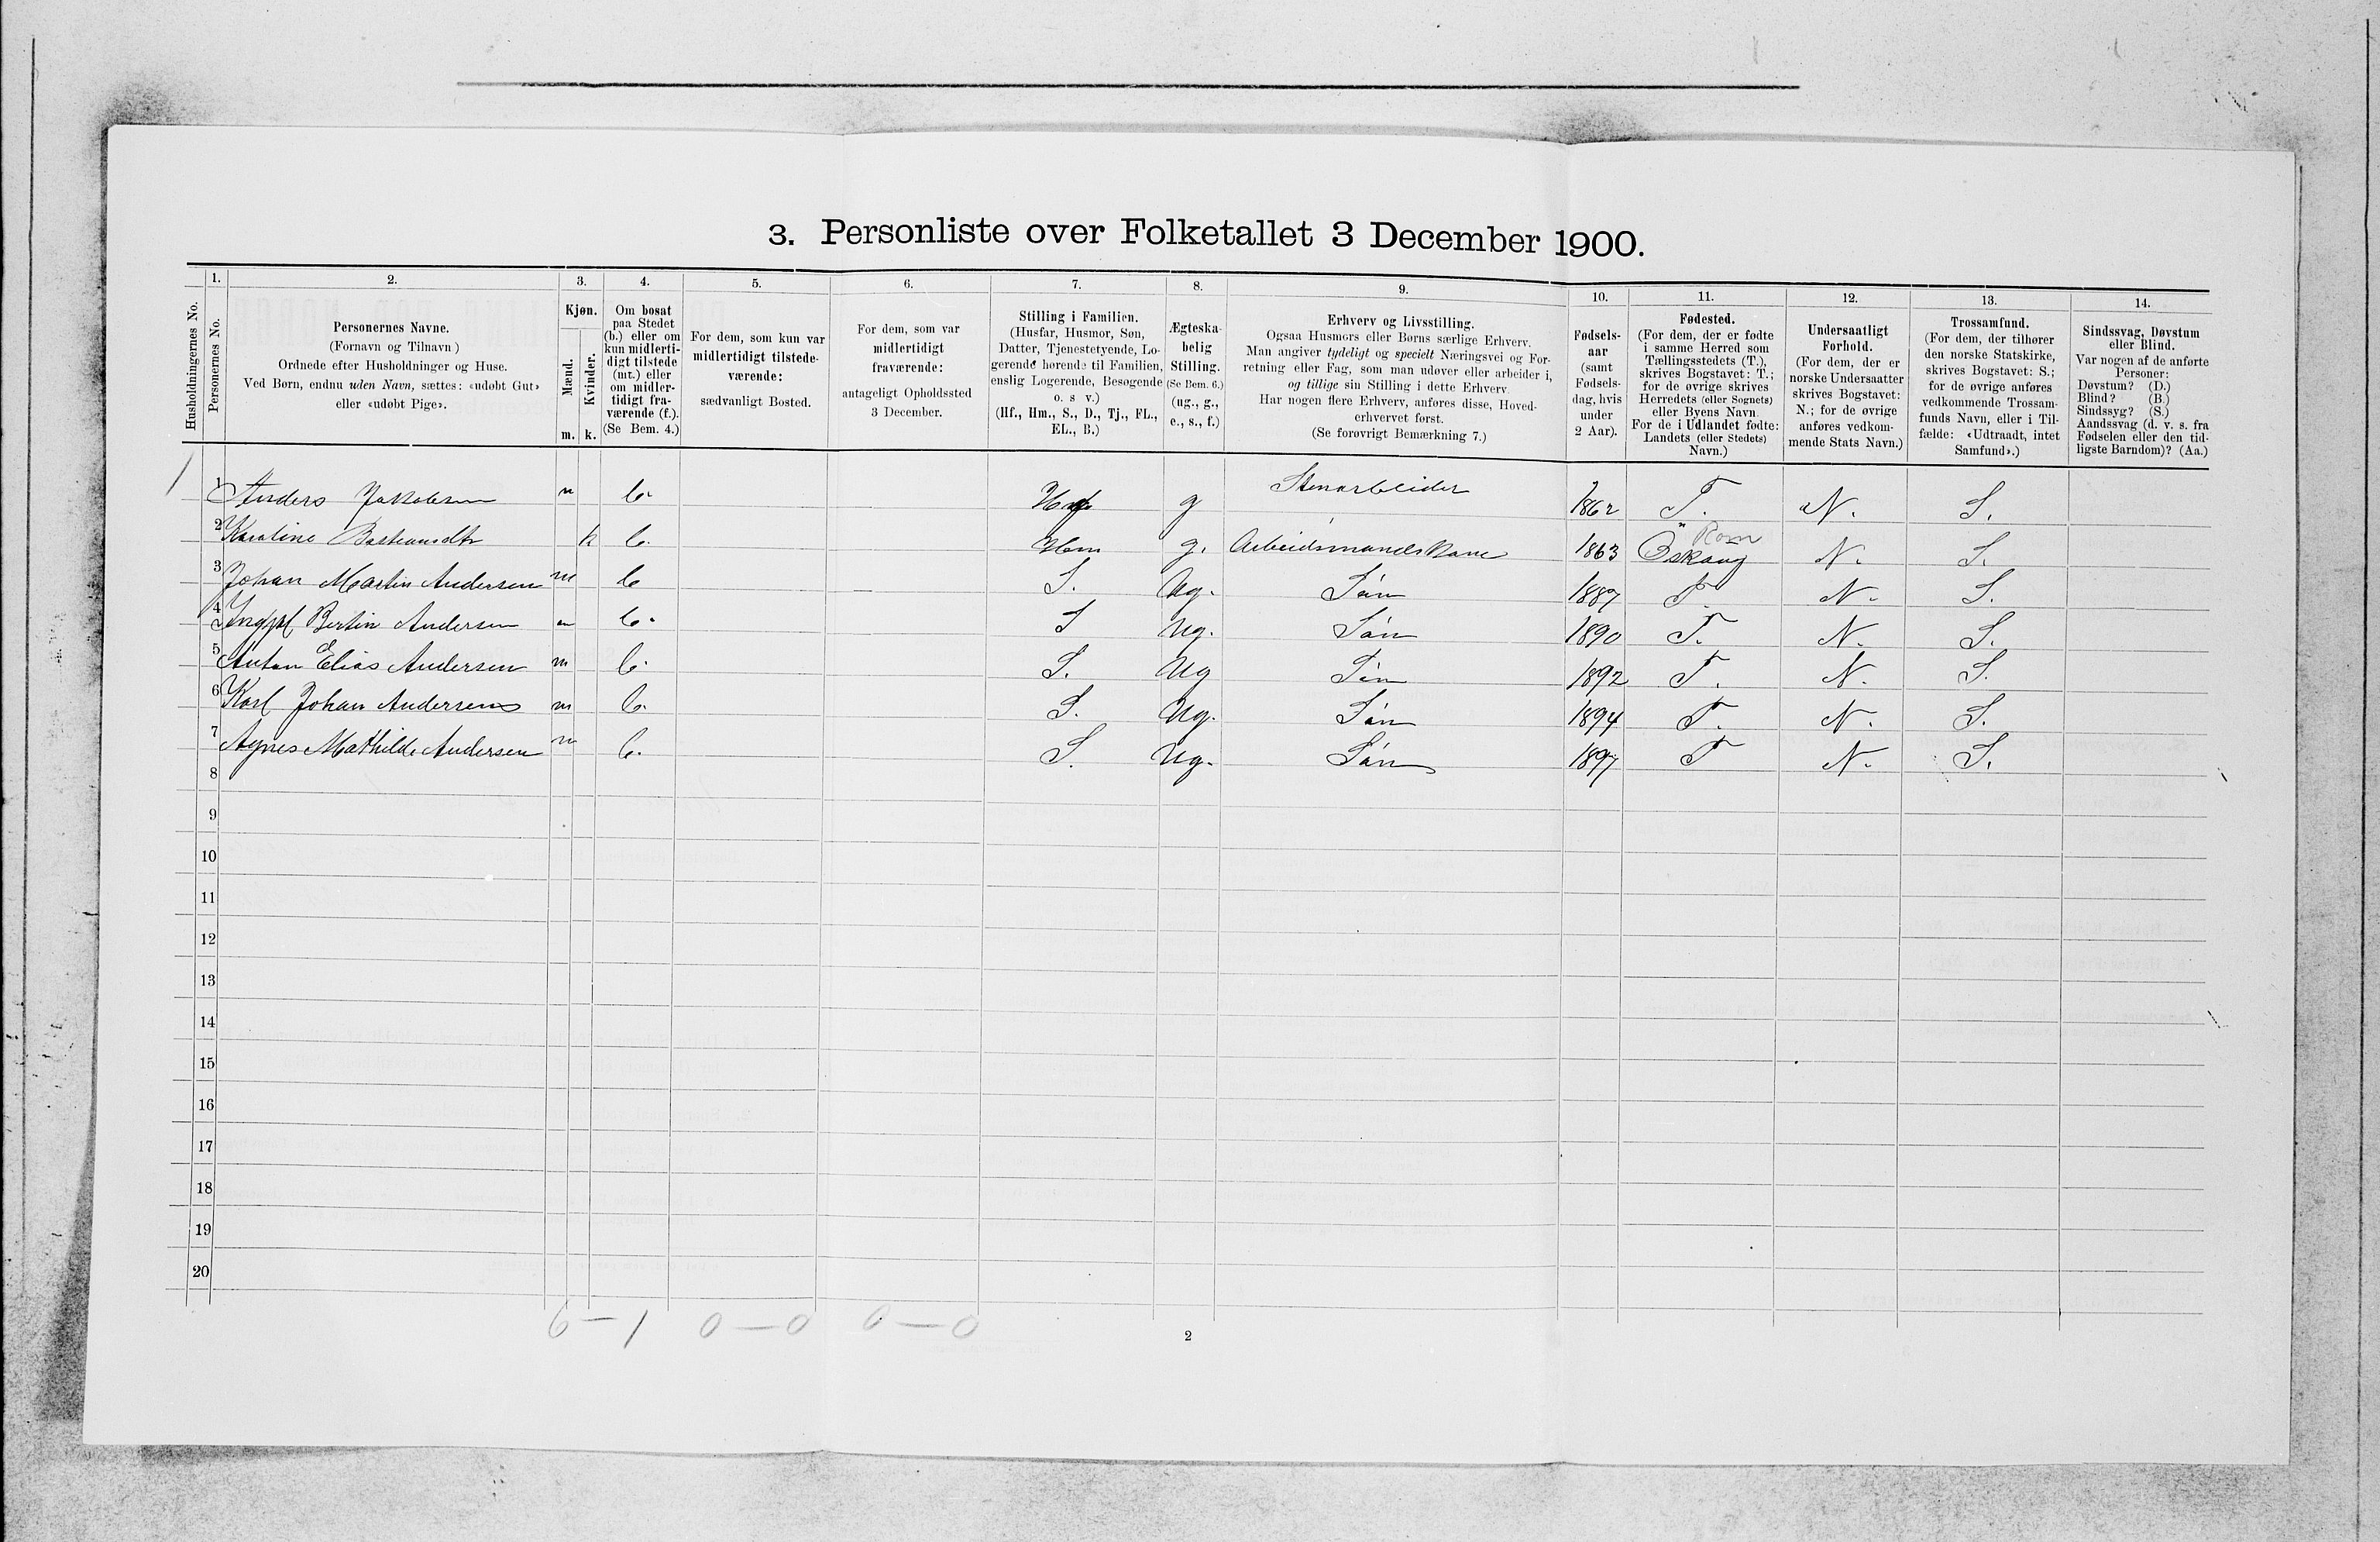 3. Personliste over Folketallet 3 December 1900.
Husholdningernes No.
1.
Personernes No.
2.
Personernes Navne.
(Fornavn og Tilnavn)
Ordnede efter Husholdninger og Huse.
Ved Børn, endnu uden Navn, sættes: «udøbt Gut»
eller «udøbt Pige».
3.
Kjøn.
Mænd.
Kvinder.
m. k.
4.
Om bosat
paa Stedet
(b.) eller om
kun midlerti-
digt tilstede
(mt.) eller
om midler-
tidigt fra-
værende (f.).
(Se Bem. 4.)
5.
For dem, som kun var
midlertidigt tilstede-
værende:
sædvanligt Bosted.
6.
For dem, som var
midlertidigt
fraværende:
antageligt Opholdssted
3 December.
7.
Stilling i Familien.
(Husfar, Husmor, Søn,
Datter, Tjenestetyende, Lo-
gerende hørende til Familien,
enslig Logerende, Besøgende
o. s v.)
(Hf., Hm., S., D., Tj., FL.,
EL., B.)
8.
Ægteska-
belig
Stilling.
(Se Bem. 6.)
(ug., g.,
e., s., f.)
9.
Erhverv og Livsstilling.
Ogsaa Husmors eller Børns særlige Erhverv.
Man angiver tydeligt og specielt Næringsvei og For-
retning eller Fag, som man udøver eller arbeider i,
og tillige sin Stilling i dette Erhverv
Har nogen flere Erhverv, anføres disse, Hoved-
erhvervet først.
(Se forøvrigt Bemærkning 7.)
10.
Fødsels-
aar
(samt
Fødsels-
dag, hvis
under
2 Aar).
11.
Fødested.
(For dem, der er fødte
i samme Herred som
Tællingsstedets (T.),
skrives Bogstavet: T.;
for de øvrige skrives
Herredets (eller Sognets)
eller Byens Navn.
For de i Udlandet fødte:
Landets (eller Stedets)
Navn.)
12.
Undersaatligt
Forhold.
(For dem, der er
norske Undersaatter
skrives Bogstavet:
N.; for de øvrige
anføres vedkom-
mende Stats Navn.)
13.
Trossamfund.
(For dem, der tilhører
den norske Statskirke,
skrives Bogstavet: S.;
for de øvrige anføres
vedkommende Trossam-
funds Navn, eller i Til-
fælde: «Udtraadt, intet
Samfund».)
14.
Sindssvag, Døvstum
eller Blind.
Var nogen af de anførte
Personer:
Døvstum? (D.)
Blind? (B.)
Sindssyg? (S.)
Aandssvag (d. v. s. fra
Fødselen eller den tid-
ligste Barndom)? (Aa.)
1 1 Anders Jakobsen m b. Hf g Stenarbeider 1862 T. N. S.
2 Karoline Bastiansdtr k b. Hm g. Arbeidsmandskone 1863 Öskoug Rom N. S.
3 Johan Martin Andersen m b S. Ug. Søn 1887 T. N. S.
4 Ingolf Bertin Andersen m b. S Ug. Søn 1890 T. N. S.
5 Anton Elias Andersen m b. S. Ug Søn 1892 T. N. S.
6 Karl Johan Andersen m b. S. Ug. Søn 1894 T. N. S.
7 Agnes Mathilde Andersen m b. S. Ug. Søn 1897 T N. S.
8
9
10
11
12
13
14
15
16
17
18
19
20
6 — 1 0 — 0 0 — 0
2